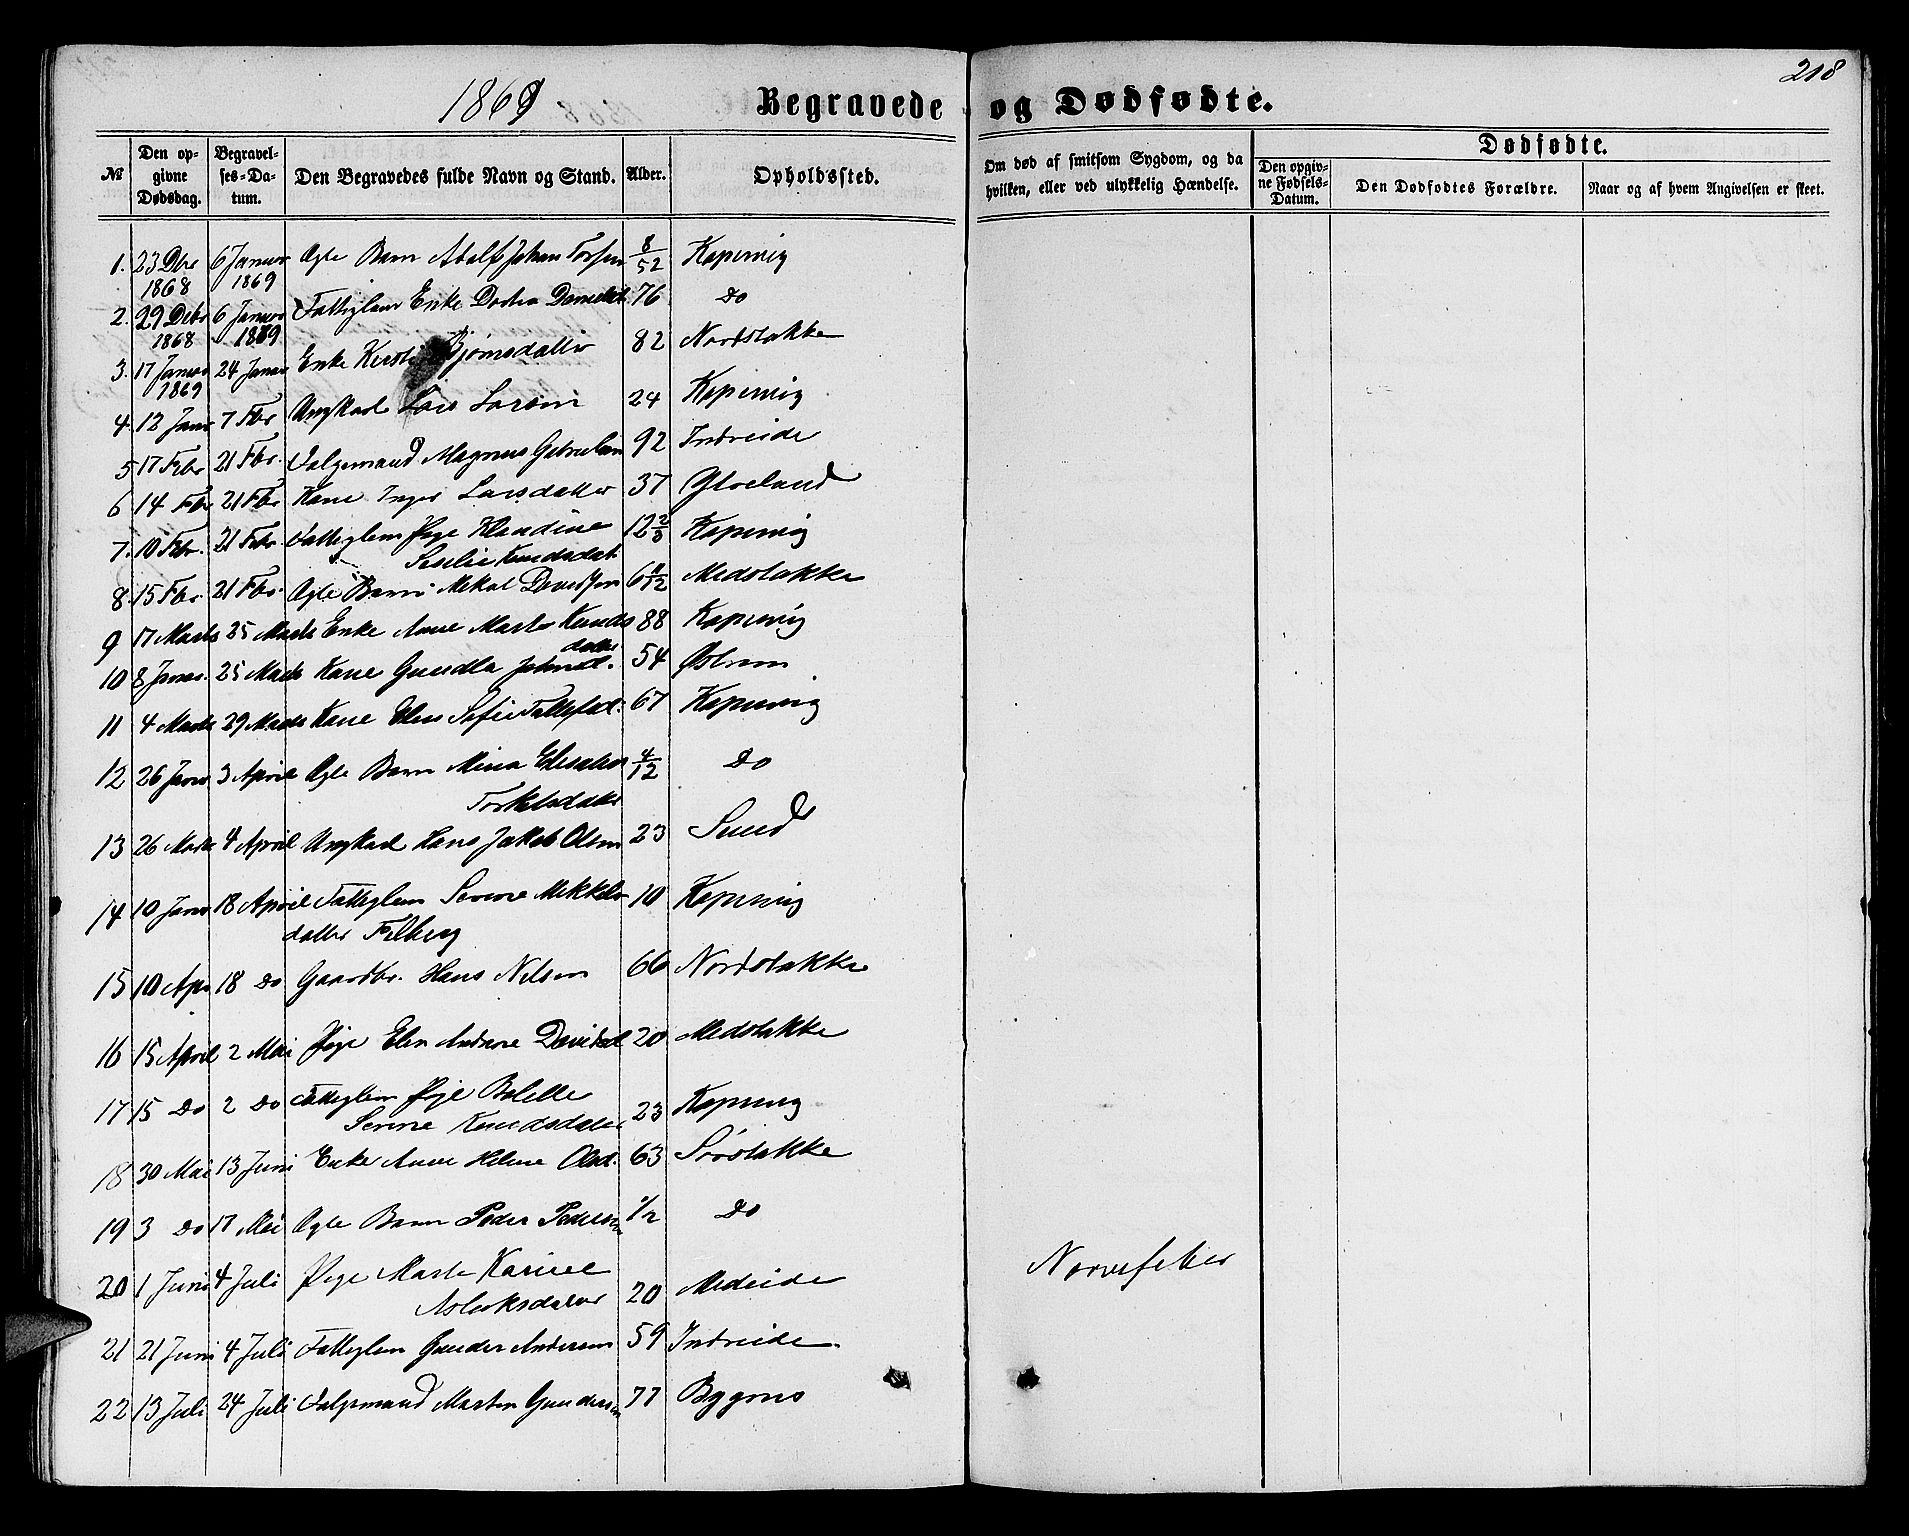 218
1869 Begravede og Dødfødte.
№ Den opgivne Dødsdag. Begravelses-Datum. Den Begravedes fulde Navn og Stand. Alder. Opholdssted. Om død af smitsom Sygdom, og da hvilken, eller ved ulykkelig Hændelse. Dødfødte. Den opgivne Fødsels-Datum. Den Dødfødtes Forældre. Naar og af hvem Angivelsen er skeet.
1. 23 Dbr 1868 6 Januar 1869 Ægte Barn Adolf Johan 8/52 Kopervig
2. 29 Debr 1868 6 Januar 1869 Fattiglem Enke Dortea 76 Do
3. 17 Januar 1869 24 Januar Enke Kersti Bjørnsdatter 82 Nordstokke
4. 12 Janr 7 Fbr Ungkarl Lars Larsen 24 Kopervig
5 17 Febr 21 Fbr. Folgemand Magnus Gabrielsen 92 Indreeide
6 14 Fbr 21 Fbr Kone Inger Larsdatter 37
7. 10 Fbr. 21 Febr. Fattiglem Pige Klandine
Knudsdat. 12 2/3 Kopervig
8. 15 Fbr. 21 Fbr. Ægte Barn Mikal Davidsen 6 11/12 Medstokke
9 17 Marts 25 Marts Enke Anne Marta Knudsdatter 88 Kopervig
10 8 Januar. 25 Marts Kone Gundla Johnsd. 54 Østrem
11 4 Marts 29 Marts Kone Elen Sofie 67 Kopervig
12 26 Janr 3 April Ægte Barn Mina
Torkelsdatter 4/12 Do
13 26 Marts 4 April Ungkarl Hans Jakob Olsen 23 Sund
14 10 Janr 18 April Fattiglem Serene Mikkelsdatter
Filberg 10 Kopervig
15 10 Apr 18 Do Gaardbr. Hans Nilsen 66 Nordstokke
16 15 April 2 Mai Pige Elen Andrea Davidsd 20 Medstokke
17 15 Do 2 Do Fattiglem Pige Bolette
Serine Knudsdatter 23 Kopervig
18 30 Mai 13 Juni Enke Anne Helene Olsd. 63 Sørstokke
19 3 Do 17 Mai Ægte Barn Peder Pedersen 1/2 Do
20 1 Juni 4 Juli Pige Marta Karine
Aslaksdatter 20 Medeide Nervefeber
21 21 Juni 4 Juli Fattiglem Gunder Andersen 59 Indreeide
22 13 Juli 24 Juli Folgemand Morten Gundersen 77 Bygnes